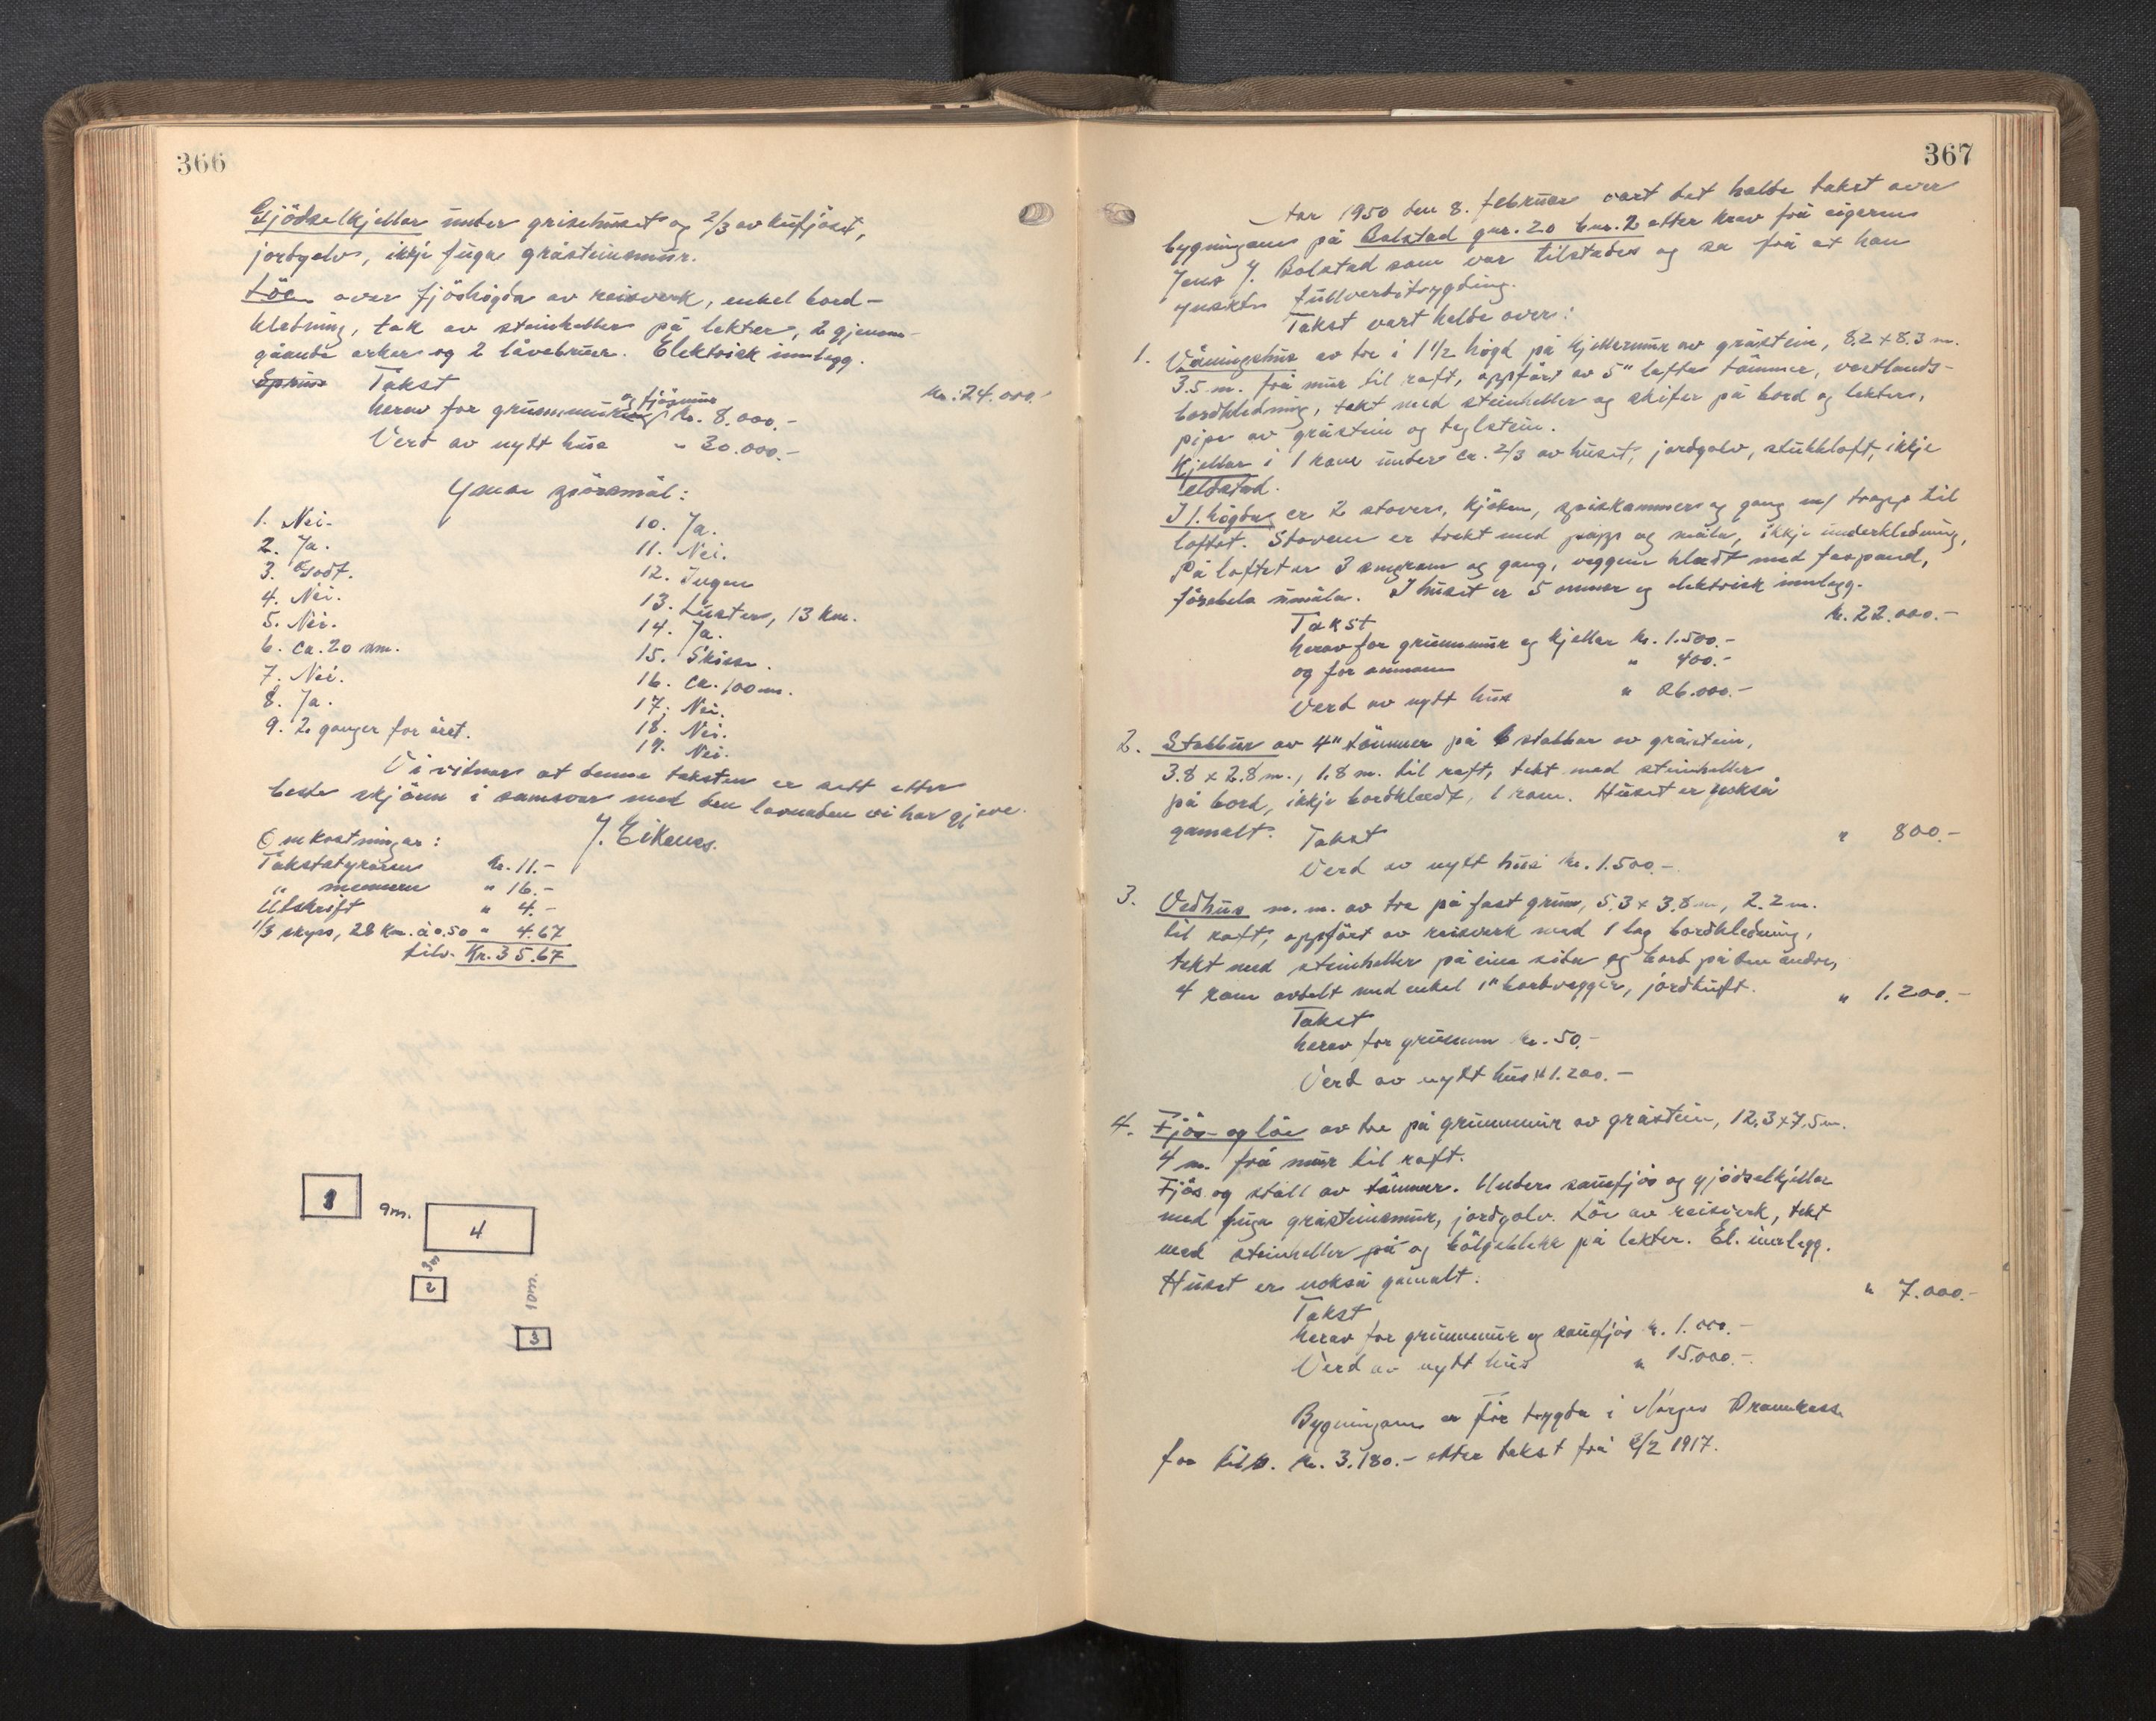 366
Gjödselkjellar under grisehuset og 2/3 av kufjöset,
jordgolv, ikkje fuga gråsteinsmur.
Löe over fjöshögda av reisverk, enkel bord-
kledning, tak av steinheller på lekter, 2 gjenom-
gåande arker og 2 låvebruer. Elektrisk innlegg.
Takst kr. 24.000.-
herav for grunnmur og fjösmur kr. 8.000.-
Verd av nytt hus " 30.000.-
Ymse spörsmål:
1. Nei.
2. Ja.
3. Godt.
4. Nei.
5. Nei.
6. ca. 20 m.
7. Nei.
8. Ja.
9. 2 ganger for året.
10. Ja.
11. Nei.
12. Ingen
13. Luster, 13 km.
14. Ja.
15.
16. ca. 100 m.
17. Nei.
18. Nei.
19. Nei.
Vi vitnar at denne taksten er sett etter
beste skjönn i samsvar med den lovnaden vi har gjeve.
J. Eikenes.
Omkostningar:
Takstatyraren kr. 11.-
" mennene " 16.-
Utskrift " 4.-
1/3 skyss, 28 km. à 0.50 " 4.67
tils. Kr. 35.67
1
9m.
4
9m
2
10m.
3
367
År 1950 den 8. februar vart det halde takst over
bygningane på Bolstad gnr. 20 bnr. 2 etter krav frå eigaren
Jens J. Bolstad som var tilstades og sa frå at han
ynskte fullverditrygding.
Takst vart halde over:
1. Våningshus av tre i 1 1/2 högd på kjellermur av gråstein, 8.2 x 8.3 m.
3.5 m. frå mur til raft, oppfört av 5" lafta tömmer, vestlands-
bordkledning, tekt med steinheller og skifer på bord og lekter,
pipe av gråstein og teglstein.
Kjellar i 1 rom under ca. 2/3 av huset, jordgolv, stukkloft, ikkje
eldstad.
I 1. högda er 2 stover, kjöken, spiskammer og gang m/ trapp til
loftet. Stovene er trekt med papp og måla, ikkje underkledning,
På loftet er 3 smårom og gang, veggene kledt med faspanel,
försöbels umåla. I huset er 5 omnar og elektrisk innlegg.
Takst kr. 22.000.-
herav for grunnmur og kjellar kr. 1.500.-
og for omnane " 400.-
Verd av nytt hus " 26.000.-
2. Stabbur av 4" tömmer på 6 stabbar av gråstein,
3.8 x 2.8 m., 1.8 m. til raft, tekt med steinheller
på bord, ikkje bordkledt, 1 rom. Huset er nokså
gamalt. Takst " 800.-
Verd av nytt hus kr. 1.500.-
3. Vedhus m.m. av tre på fast grunn, 5.3 x 3.8 m, 2.2 m.
til raft, oppfört av reisverk med 1 lag bordkledning,
tekt med steinheller på eine sida og bord på den andre,
4 rom avdelt med enkel 1" bordvegger, jordtuft. " 1.200.-
Takst
herav for grunnen kr. 50.-
Verd av nytt hus " 1.200.-
4. Fjös- og löe av tre på grunnmur av gråstein, 12.3 x 7.5 m.
4 m. frå mur til raft.
Fjös og stall av tömmer. Under sauefjös og gjödselkjellar
med fuga gråsteinsmur, jordgolv. Löe av reisverk, tekt
med steinheller på og bölgeblekk på lekter. El. innlegg.
Huset er nokså gamalt.
Takst " 7.000.-
herav for grunnmur og sauefjös kr. 1.000.-
Verd av nytt hus " 15.000.-
Bygningane er för trygda i Norges Brannkasse
for tils. kr. 3.180.- etter takst frå 2/2 1917.